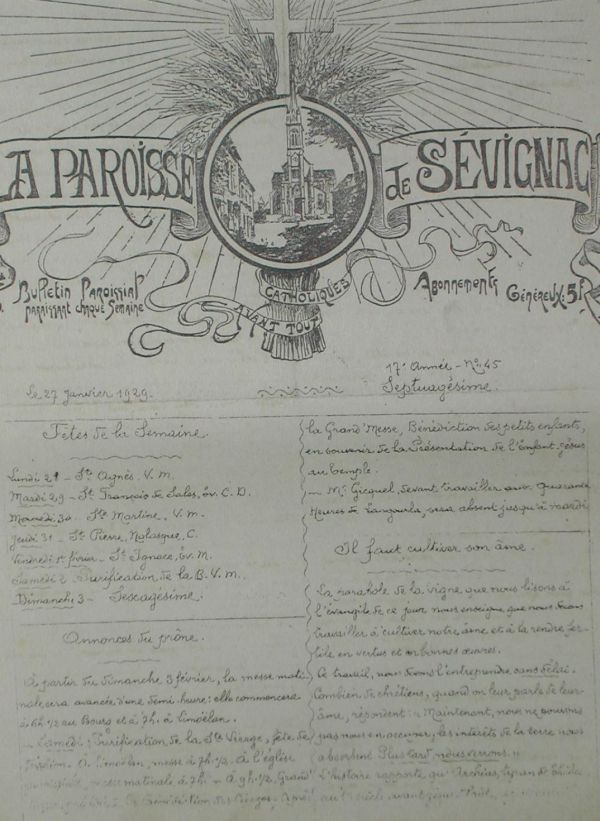 LA PAROISSE de SÉVIGNAC
Bulletin Paroissial
paraissant chaque semaine
CATHOLIQUES
AVANT TOUT
Abonnements
Généreux: 5f
Le 27 janvier 1929.
17e Année - No 45
Septuagésime.
Fêtes de la Semaine.
Lundi 28 - Ste Agnès, V. M.
Mardi 29 - St François de Sales, Ev. C. D.
Mercredi 30. Ste Martine, V. M.
Jeudi 31 - St Pierre, Nolasque, C.
Vendredi 1er février - St Ignace, Ev. M.
Samedi 2. Purification de la B. V. M.
Dimanche 3 - Sexagésime.
Annonces du prône.
A partir du dimanche 3 février, la messe mati-
nale sera avancée d'une demi-heure: elle commencera
à 6h 1/2 au Bourg et à 7h. à Limoëlan.
- Samedi: Purification de la Ste Vierge, fête de
dévotion. A Limoëlan, messe à 7h. 1/2. A l'église
messe matinale à 7h. - A 9h. 1/2, Grand'
Bénédiction des Cierges
la Grand'Messe, Bénédiction des petits enfants,
en souvenir de la Présentation de l'Enfant-Jésus
au temple.
- Mr Gicquel, devant travailler aux Quarante
Heures de Langourla, sera absent jusqu'à mardi
Il faut cultiver son âme.
La parabole de la vigne que nous lisons à
l'évangile de ce jour nous enseigne que nous devons
travailler à cultiver notre âme et à la rendre fer-
tile en vertus et en bonnes œuvres.
Ce travail, nous devons l'entreprendre sans délai.
Combien de chrétiens, quand on leur parle de leur
âme, répondent: "Maintenant, nous ne pouvons
pas nous en occuper; les intérêts de la terre nous
absorbent. Plus tard nous verrons."
L'histoire rapporte qu'Archias, tyran de Thèbes
au siècle avant Jésus-Christ,